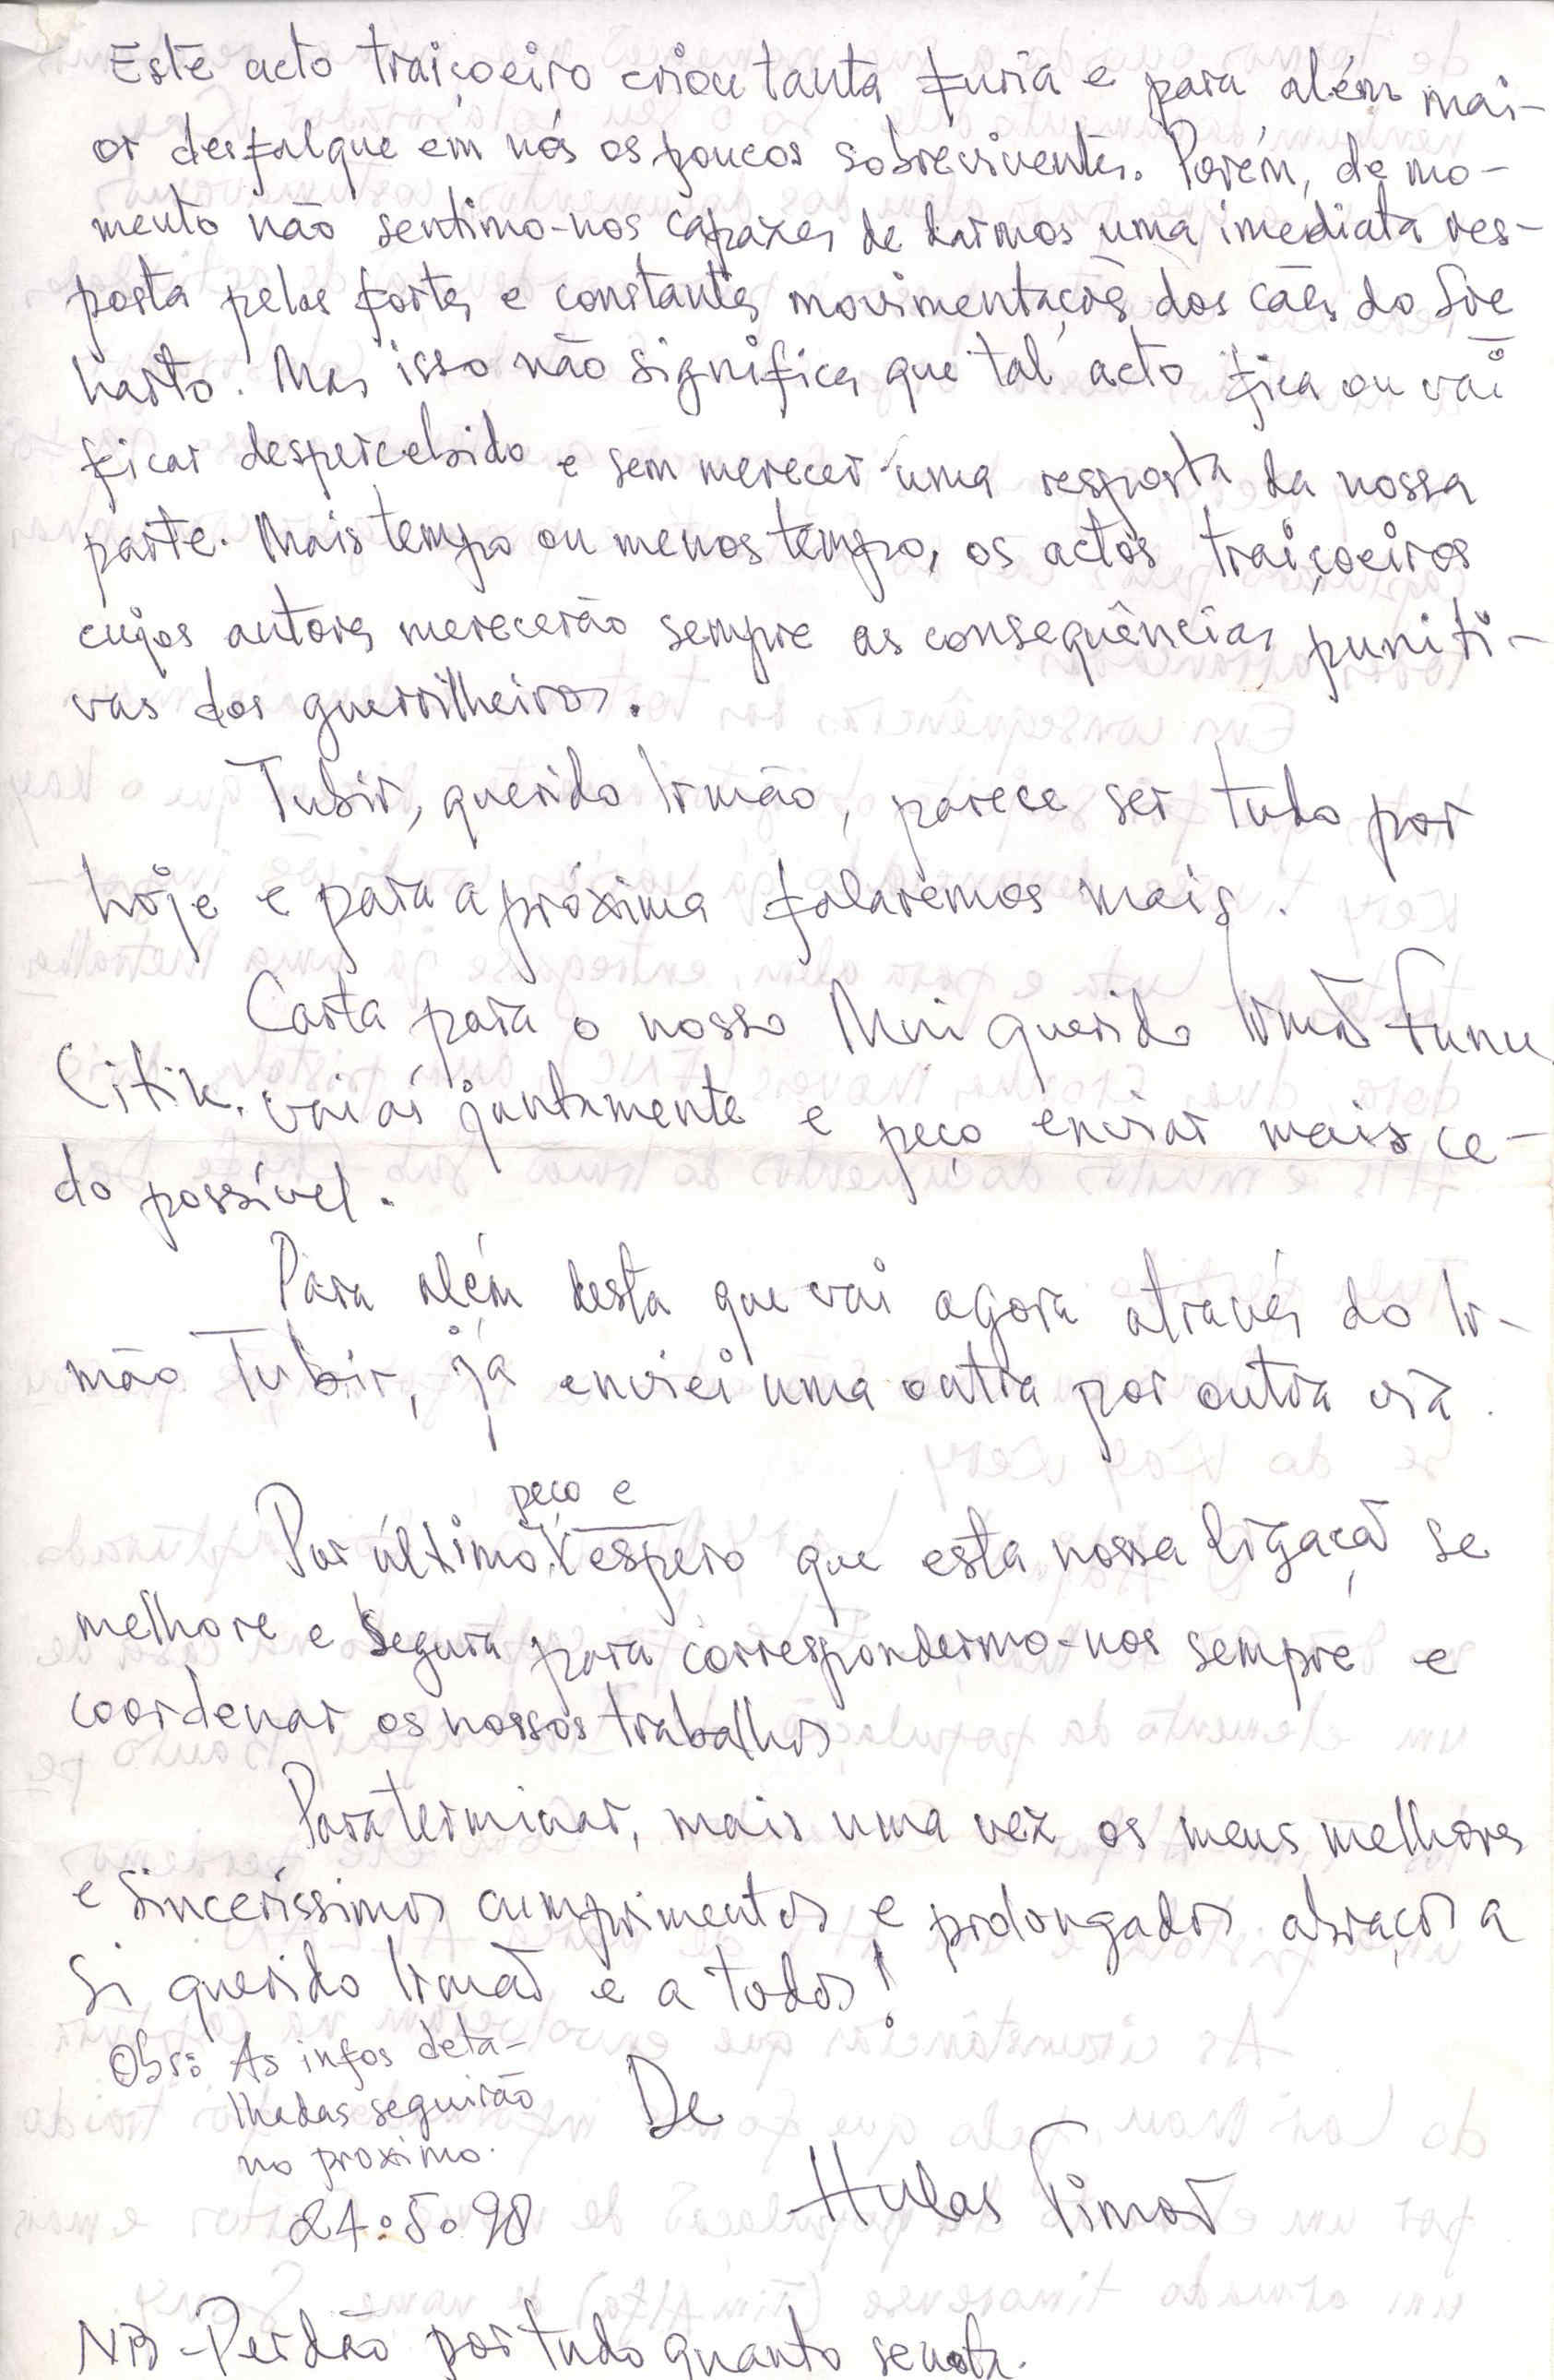 Este acto traiçoeiro criou tanta furia e para além mai-
or desfalque em nós os poucos sobreviventes. Porém, de mo-
mento não sentimo-nos capazes de darmos uma imediata res-
posta pelas fortes e constantes movimentações dos cães do Soe
harto. Mas isso não significa que tal acto fica ou vai
ficar despercebido e sem merecer uma resposta da nossa
parte. Mais tempo ou menos tempo, os actos traiçoeiros
cujos autores merecerão sempre as consequências puniti-
vas dos guerrilheiros.
Tubir, querido Irmão, parece ser tudo por
hoje e para a próxima falaremos mais.
Carta para o nosso Mui querido Irmão Funu
Citik. vai aí juntamente e peço enviar mais ce-
do possível.
Para além desta que vai agora através do Ir-
mão Tubir, já enviei uma outra por outra via.
peço e
Por último, espero que esta nossa ligação se
melhore e segura para correspondermo-nos sempre e
coordenar os nossos trabalhos
Para terminar, mais uma vez os meus melhores
e sinceríssimos cumprimentos e prolongados abraços a
Si querido Irmão e a todos!
Obs: As infos deta-
lhadas seguirão
no proximo.
De
24.5.98
Hulas Timor
NB - Perdão por tudo quanto se nota.